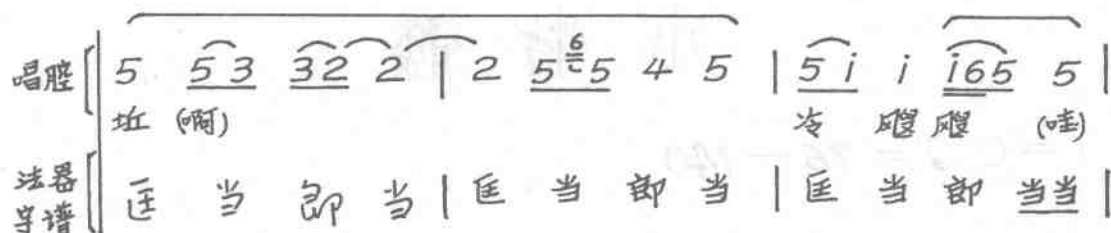 唱腔 5 5 3 3 2 2 | 2 5 6 5 4 5 | 5 i i i 6 5 5 |
坵 (啊) 冷 飕 飕 (哇)
法器字谱 匡 当 郎 当 | 匡 当 郎 当 | 匡 当 郎 当当 |